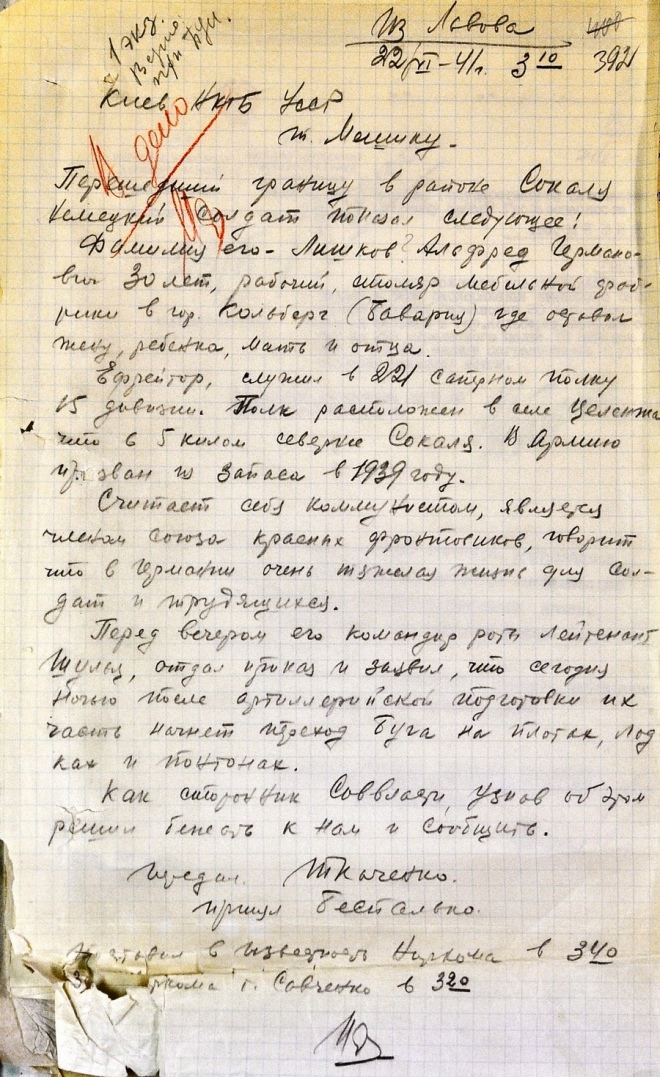 1 экз.
при
Из Львова
22/VI-41г. 3 10 392
Киев НКГБ УССР
т. Мешику.
В дело
Перешедший границу в районе Сокаля
немецкий солдат показал следующее:
Фамилия его - Лисков? Альфред Германо-
вич 30 лет, рабочий, столяр мебельной фаб-
рики в гор. Кольберг (Бавария) где оставил
жену, ребенка, мать и отца.
Ефрейтор, служил в 221 саперном полку
15 дивизии. Полк расположен в селе Целенжа
что в 5 килом севернее Сокаля. В Армию
призван из запаса в 1939 году.
Считает себя коммунистом, является
членом союза красных фронтовиков, говорит
что в Германии очень тяжелая жизнь для сол-
дат и трудящихся.
Перед вечером его командир роты лейтенант
Шульц, отдал приказ и заявил, что сегодня
ночью после артиллерийской подготовки их
часть начнет переход Буга на плотах, лод
ках и понтонах.
Как сторонник Соввласти, узнав об этом
решил бежать к нам и сообщить.
передал. Ткаченко.
принял Беспалько.
в известность Наркома в 3 40
т. Савченко в 3 20